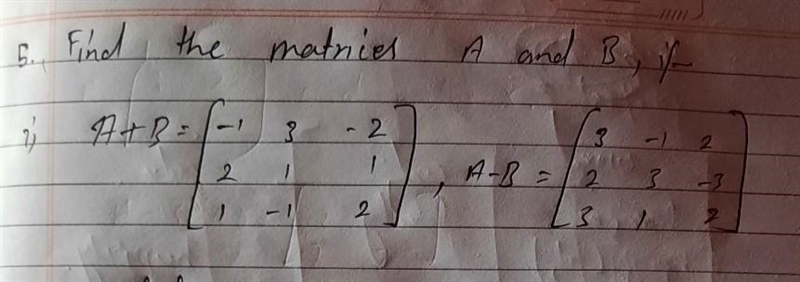 5. Find the matries A and B, if
i) A+B = [-1 3 -2
2 1 1
1 -1 2], A-B = [3 -1 2
2 3 -3
3 1 2]